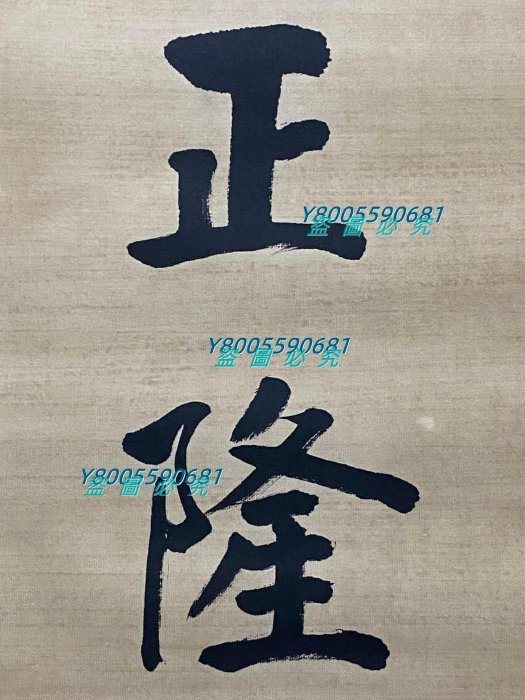 正
Y8005590681
盜圖必究
Y8005590681
盜圖必究
隆
Y8005590681
盜圖必究